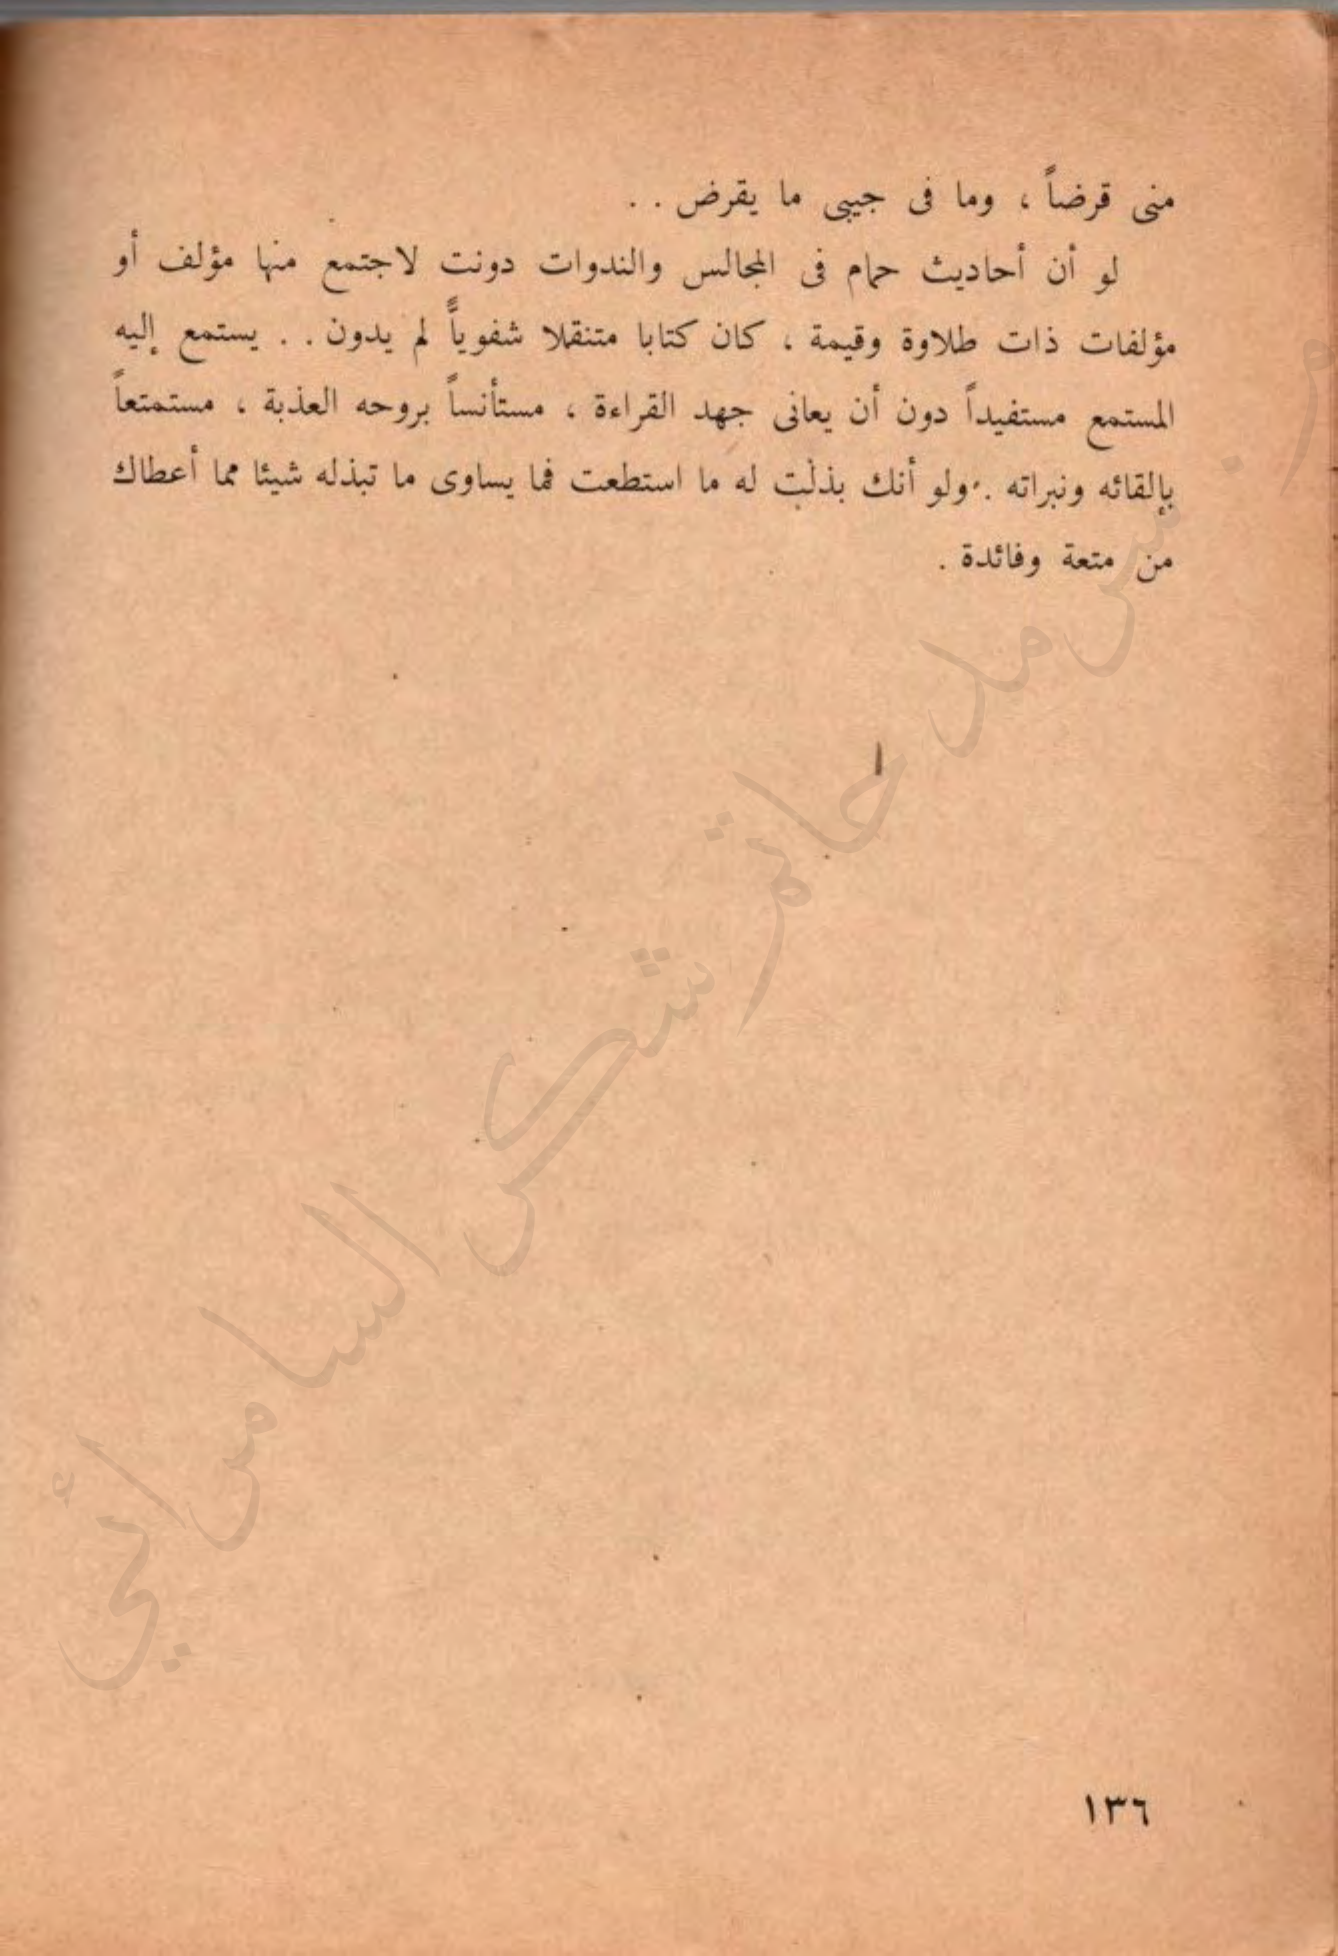 منى قرضاً ، وما فى جيبى ما يقرض . .
لو أن أحاديث حمام فى المجالس والندوات دونت لاجتمع منها مؤلف أو
مؤلفات ذات طلاوة وقيمة ، كان كتابا متنقلا شفوياًّ لم يدون . . يستمع إليه
المستمع مستفيداً دون أن يعانى جهد القراءة ، مستأنساً بروحه العذبة ، مستمتعاً
بإلقائه ونبراته . ولو أنك بذلت له ما استطعت فما يساوى ما تبذله شيئا مما أعطاك
من متعة وفائدة .
حاتم شكر السامرائي
١٣٦